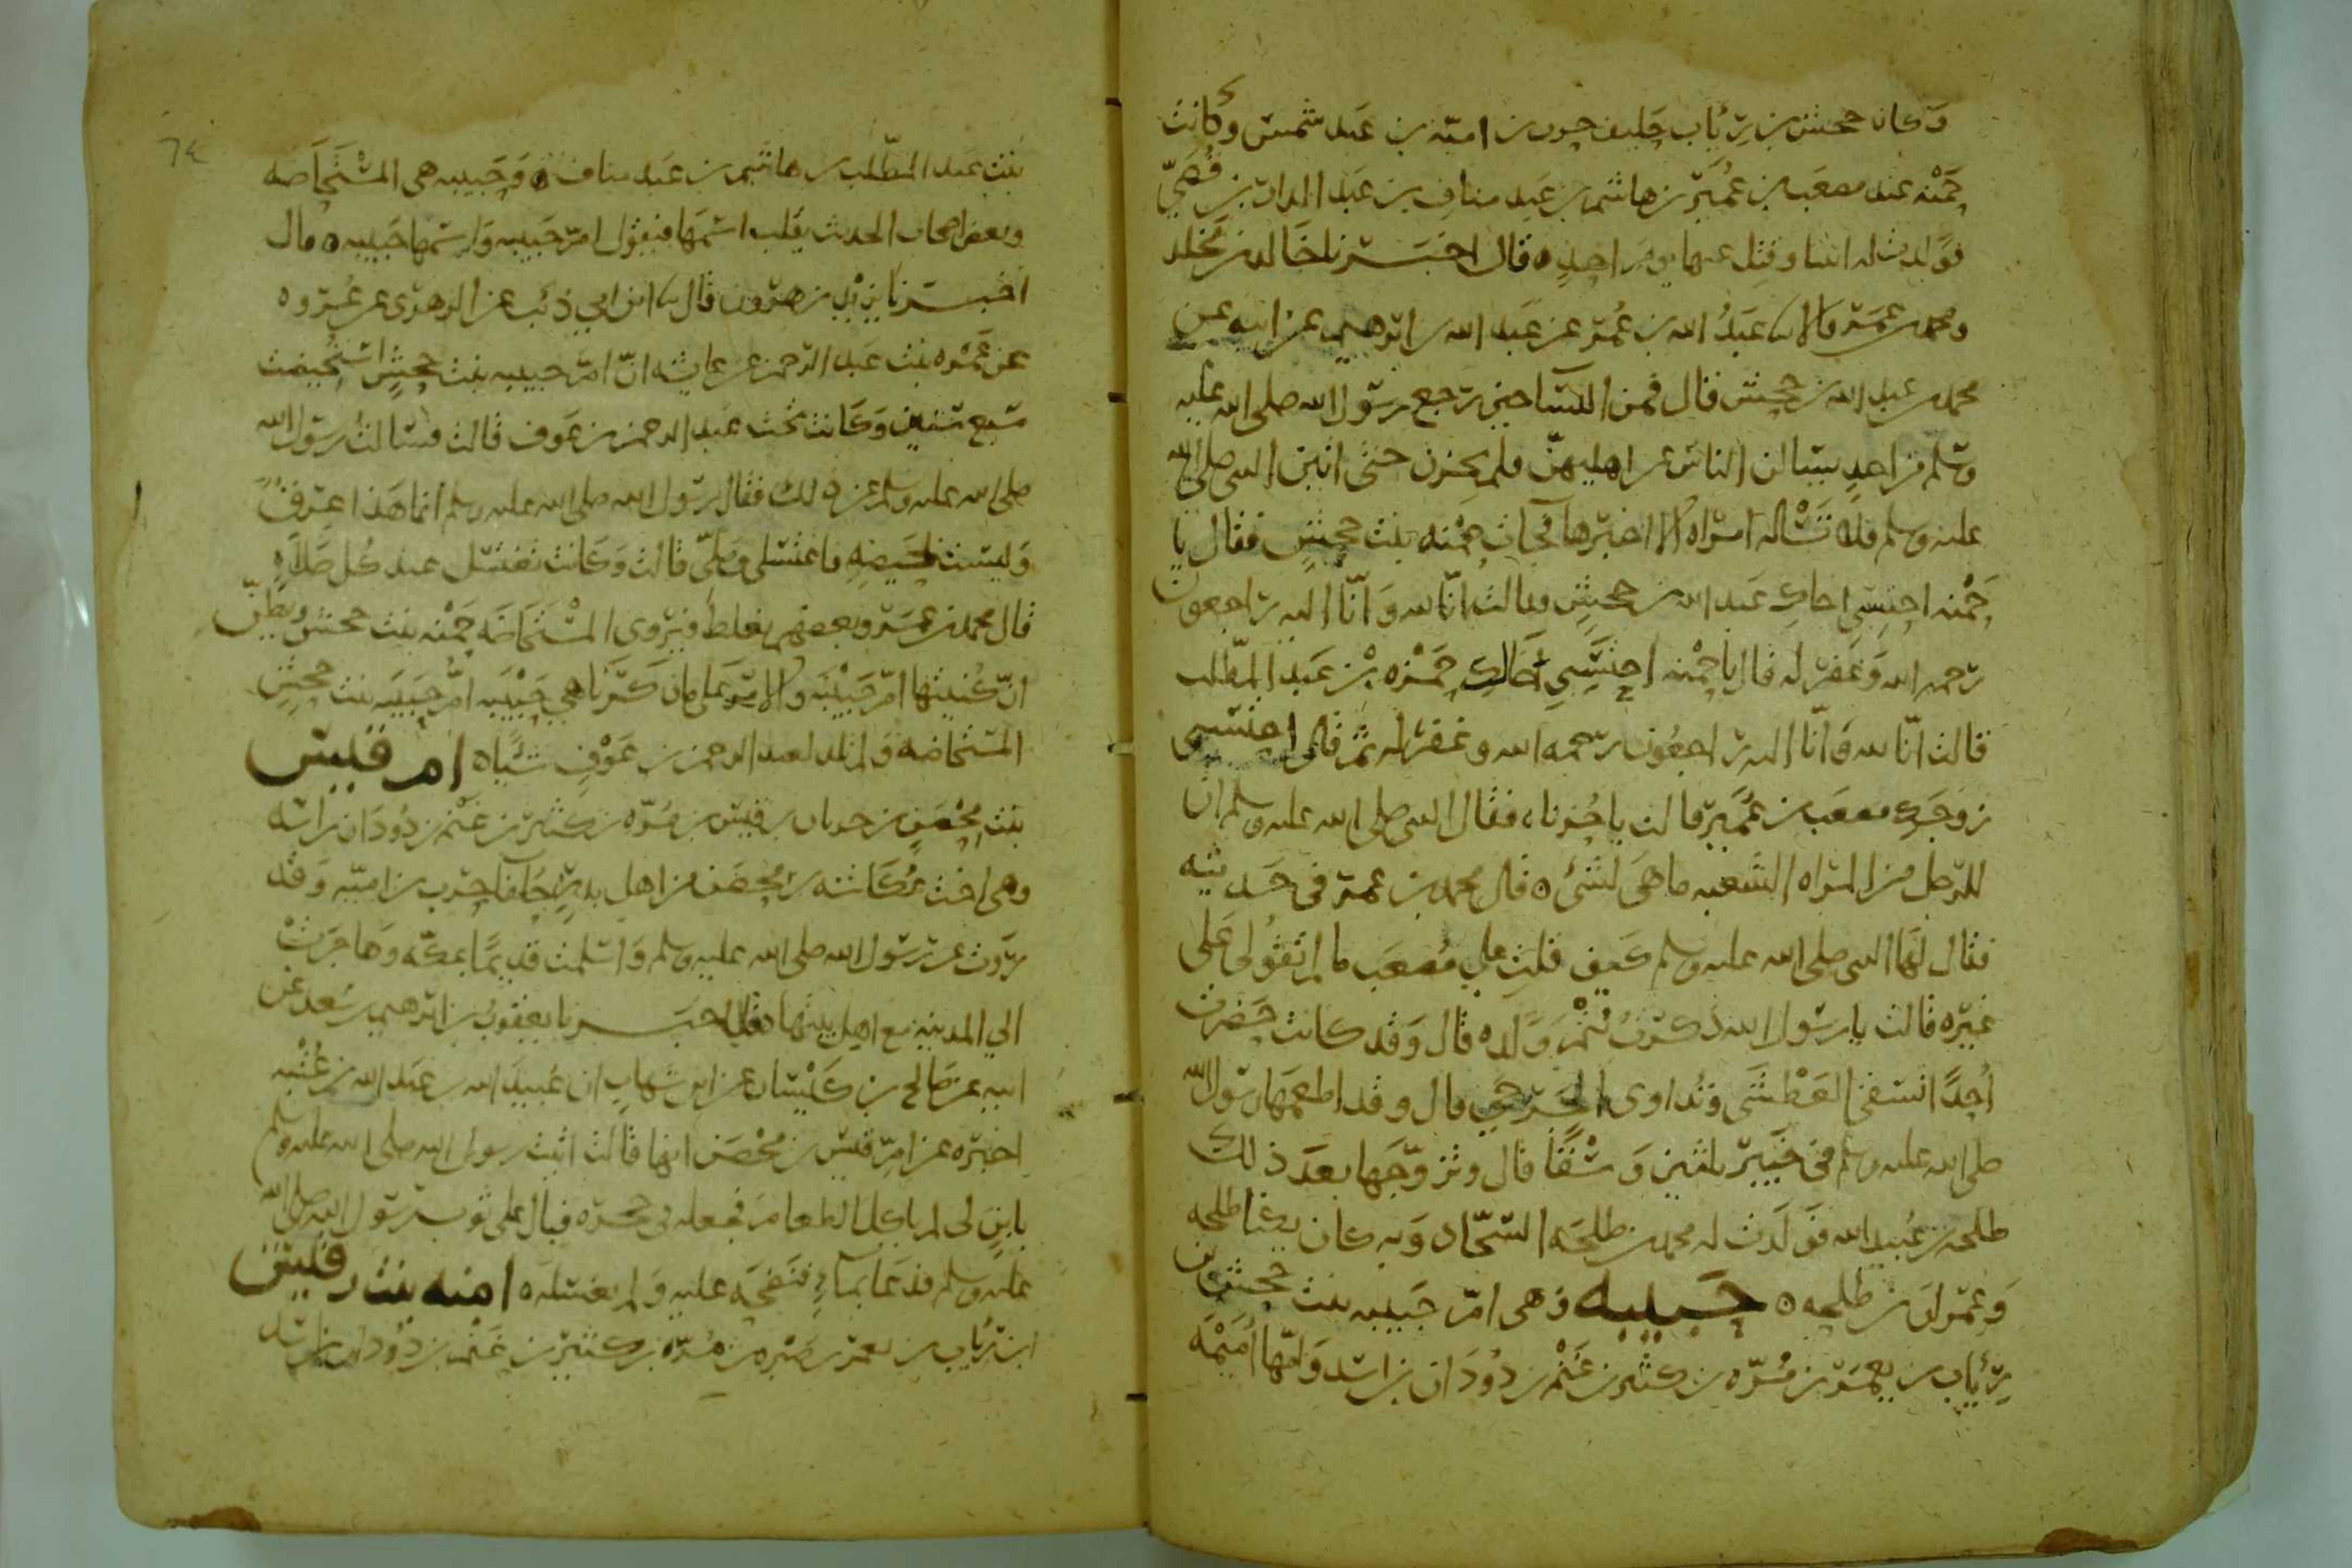 وكان جحش بن رئاب حليف حرب بن امية بن عبد شمس وكانت
حمنه عند مصعب بن عمير بن هاشم بن عبد مناف بن عبد الدار بن قصي
فولدت له ابنة وقتل عنها يوم احد ه قال اخبرنا خالد بن مخلد
ومحمد بن عمر قالا نا عبد الله بن عمر عن عبد الله بن ابرهيم عن ابيه عن
محمد بن عبد الله بن جحش قال قمن النسا حين رجع رسول الله صلى الله عليه
وسلم من احد يسالن الناس عن اهليهن فلم يخبرن حتى اتين النبي صلى الله
عليه وسلم فلا تساله امراه الا اخبرها فجات حمنه بنت جحش فقال يا
حمنه احتسبي اخاك عبد الله بن جحش قالت انا لله وانا اليه راجعون
رحمه الله وغفر له قال يا حمنه احتسبي خالك حمزه بن عبد المطلب
قالت انا لله وانا اليه راجعون رحمه الله وغفر له ثم قال احتسبي
زوجك مصعب بن عمير قالت يا حزناه فقال النبي صلى الله عليه وسلم ان
للرجل من المراه لشعبه ما هي لشئ ه قال محمد بن عمر في حديثه
فقال لها النبي صلى الله عليه وسلم كيف قلت على مصعب ما لم تقولي على
غيره قالت يا رسول الله ذكرت يتم ولده قال وقد كانت حضرت
أحدا تسقي العطشى وتداوى الجرحى قال وقد اطعمها رسول الله
صلى الله عليه وسلم في خيبر ثلثين وسقا قال وتزوجها بعد ذلك
طلحه بن عبيد الله فولدت له محمد بن طلحه السجاد وبه كان يكنا طلحه
وعمران بن طلحه ه حبيبه وهي ام حبيبه بنت جحش بن
رئاب بن يعمر بن مره بن كثير بن غنم بن دودان بن اسد وامها أميمه
بنت عبد المطلب بن هاشم بن عبد مناف ه وحبيبه هي المستحاضه
وبعض اصحاب الحديث يقلب اسمها فيقول ام حبيبه وارسمها حبيبه ه قال
اخبرنا يزيد بن هرون قال نا ابن ابي ذئب عن الزهري عن عروه
عن عمره بنت عبد الرحمن عن عايشه ان ام حبيبه بنت جحش استحيضت
سبع سنين وكانت تحت عبد الرحمن بن عوف قالت فسالت رسول الله
صلى الله عليه وسلم عن ذلك فقال رسول الله صلى الله عليه وسلم انما هذا عرق
وليست بحيضه فاغتسلي وصلي قالت وكانت تغتسل عند كل صلاه
قال محمد بن عمر وبعضهم يغلط فيروى المستحاضه حمنه بنت جحش ويظن
ان كنيتها ام حبيبه والامر على ما ذكرنا هي حبيبه ام حبيبه بنت جحش
المستحاضه ولم تلد لعبد الرحمن بن عوف شيا ه ام قيس
بنت محصن بن حرثان بن قيس بن مره بن كثير بن غنم بن دودان بن اسد
وهي اخت عكاشه بن محصن من اهل بدر حلفا حرب بن اميه وقد
روت عن رسول الله صلى الله عليه وسلم واسلمت قديما بمكه وهاجرت
الي المدينه مع اهل بيتها ه قال اخبرنا يعقوب بن ابرهيم بن سعد عن
ابيه عن صالح بن كيسان عن ابن شهاب ان عبيد الله بن عبد الله بن عتبه
اخبره عن ام قيس بن محصن انها قالت اتيت رسول الله صلى الله عليه وسلم
بابن لى لم ياكل الطعام فجعله في حجره فبال على ثوب رسول الله صلى الله
عليه وسلم فدعا بماء فنضحه عليه ولم يغسله ه امنه بنت رقيش
ابن رئاب بن يعمر بن صبره بن مره بن كثير بن غنم بن دودان بن اسد